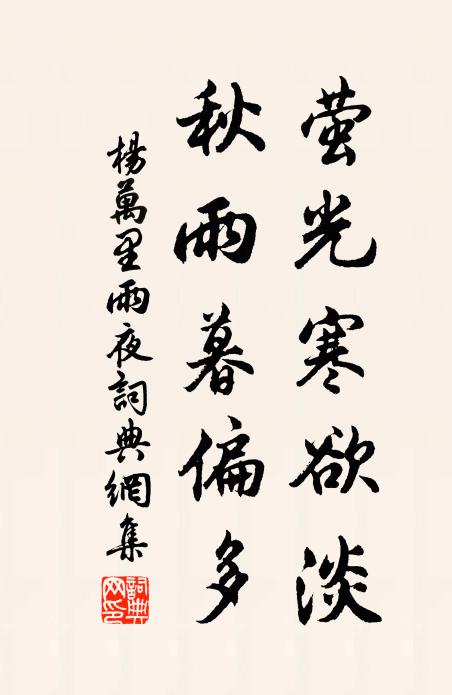 萤光寒欲淡
秋雨暮偏多
楊萬里雨夜詞典網集
詞典网印